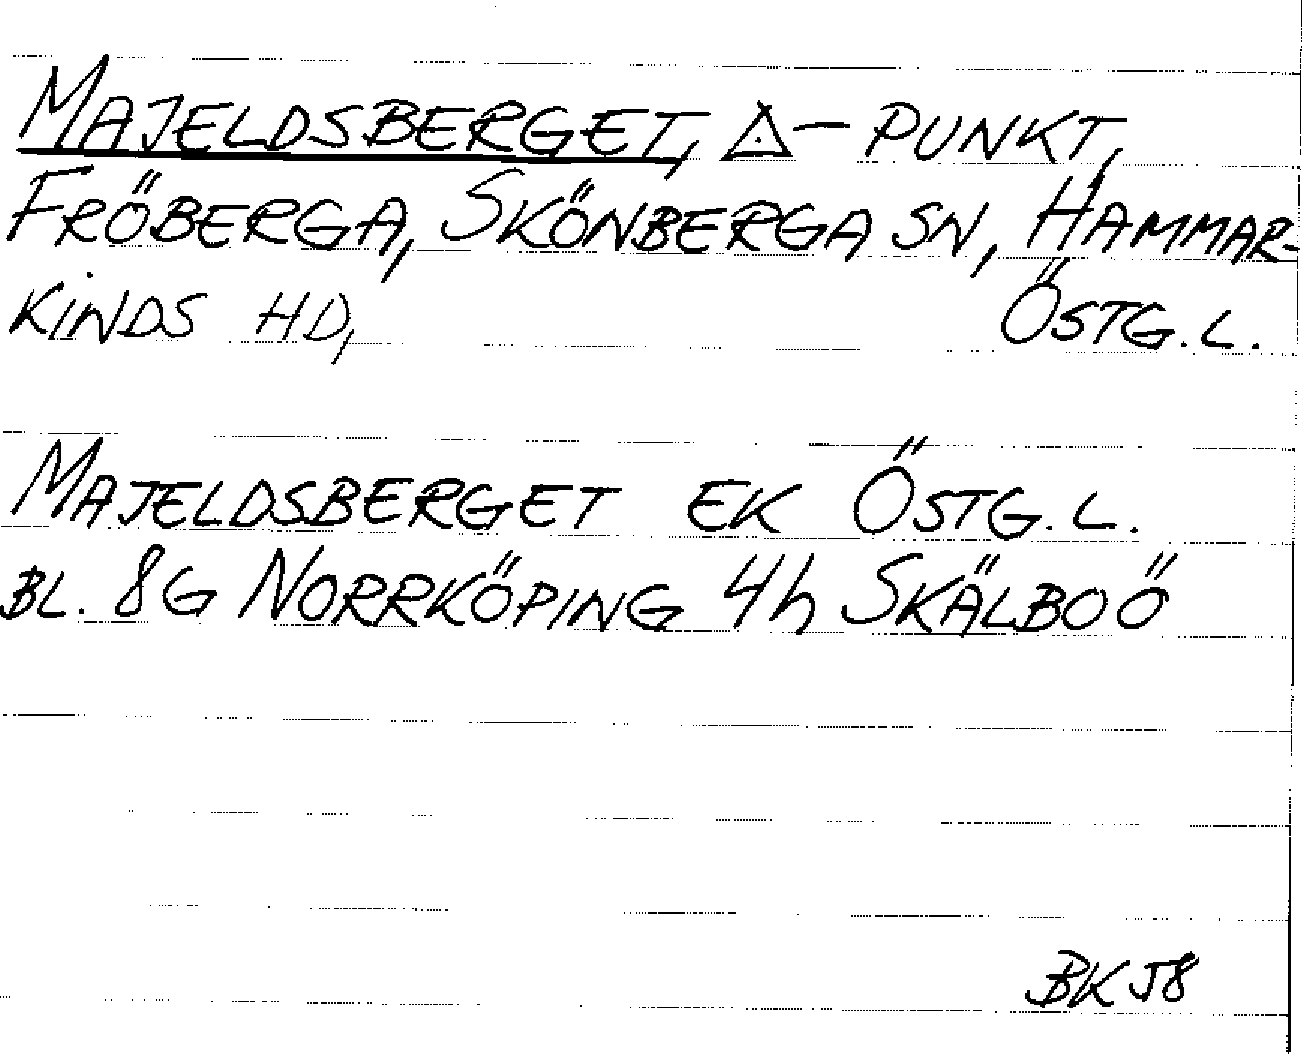 MAJELDSBERGET, △-PUNKT,
FRÖBERGA, SKÖNBERGA SN, HAMMAR-
KINDS HD, ÖSTG. L.
MAJELDSBERGET EK ÖSTG. L.
BL. 8G NORRKÖPING 4h SKÄLBOÖ
BK 58